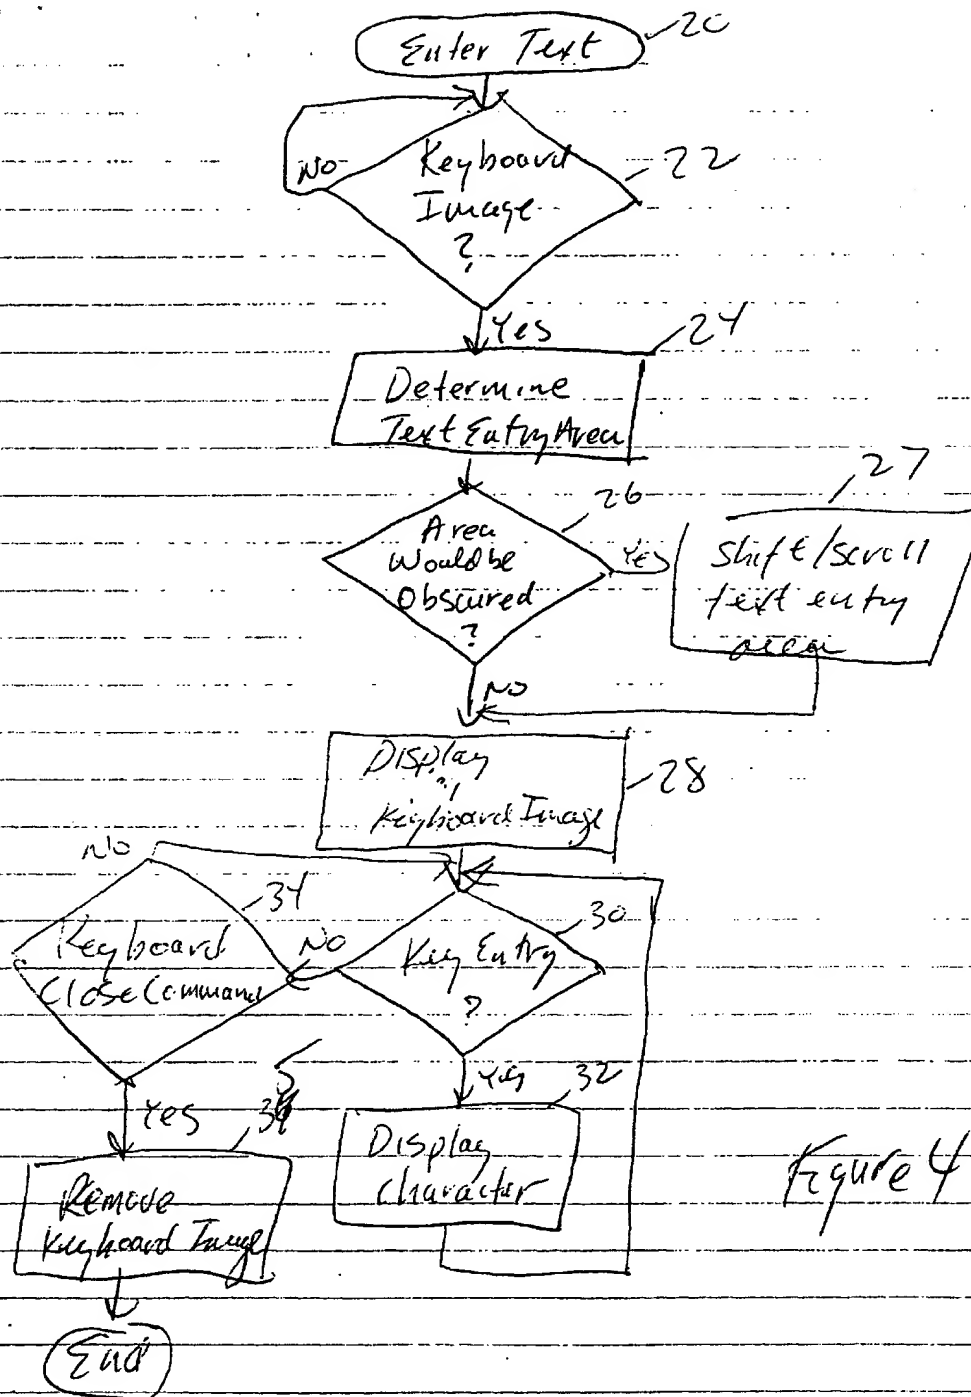 Enter Text
20
Keyboard
Image
?
22
No
Yes
24
Determine
Text Entry Area
26
Area
Would be
Obscured
?
Yes
27
Shift/scroll
text entry
area
No
Display
Keyboard Image
28
No
34
Keyboard
Close Command
No
30
Key Entry
?
Yes
32
Display
Character
Yes
5
Remove
Keyboard Image
End
Figure 4